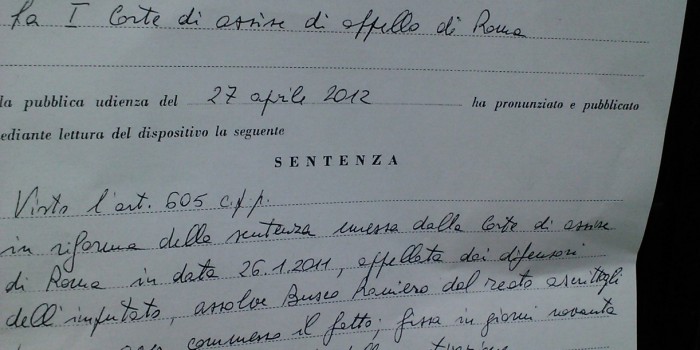 La I Corte di assise di appello di Roma
la pubblica udienza del 27 aprile 2012 ha pronunziato e pubblicato
ediante lettura del dispositivo la seguente
SENTENZA
Visto l'art. 605 c.p.p.
in riforma della sentenza emessa dalla Corte di assise
di Roma in data 26.1.2011, appellata dai difensori
dell'imputato, assolve Busco Raniero dal reato ascrittogli
commesso il fatto; fissa in giorni novanta